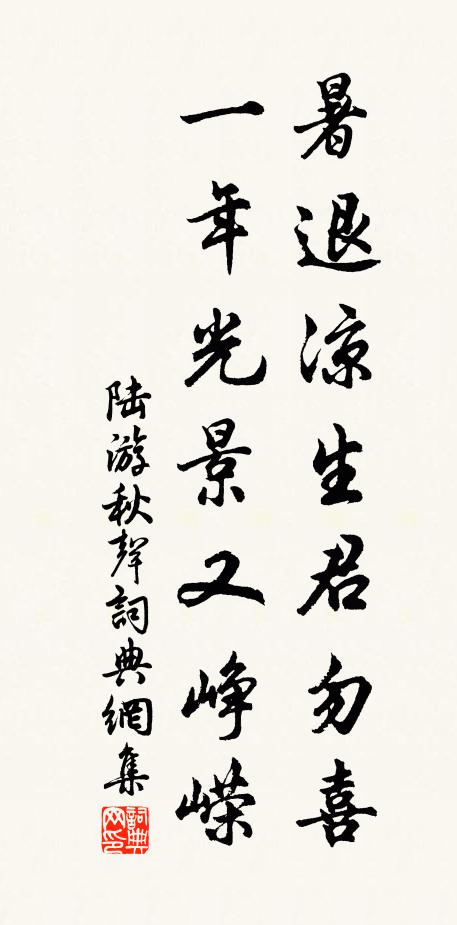 暑退凉生君勿喜
一年光景又峥嵘
陆游秋聲詞典網集
詞典网印